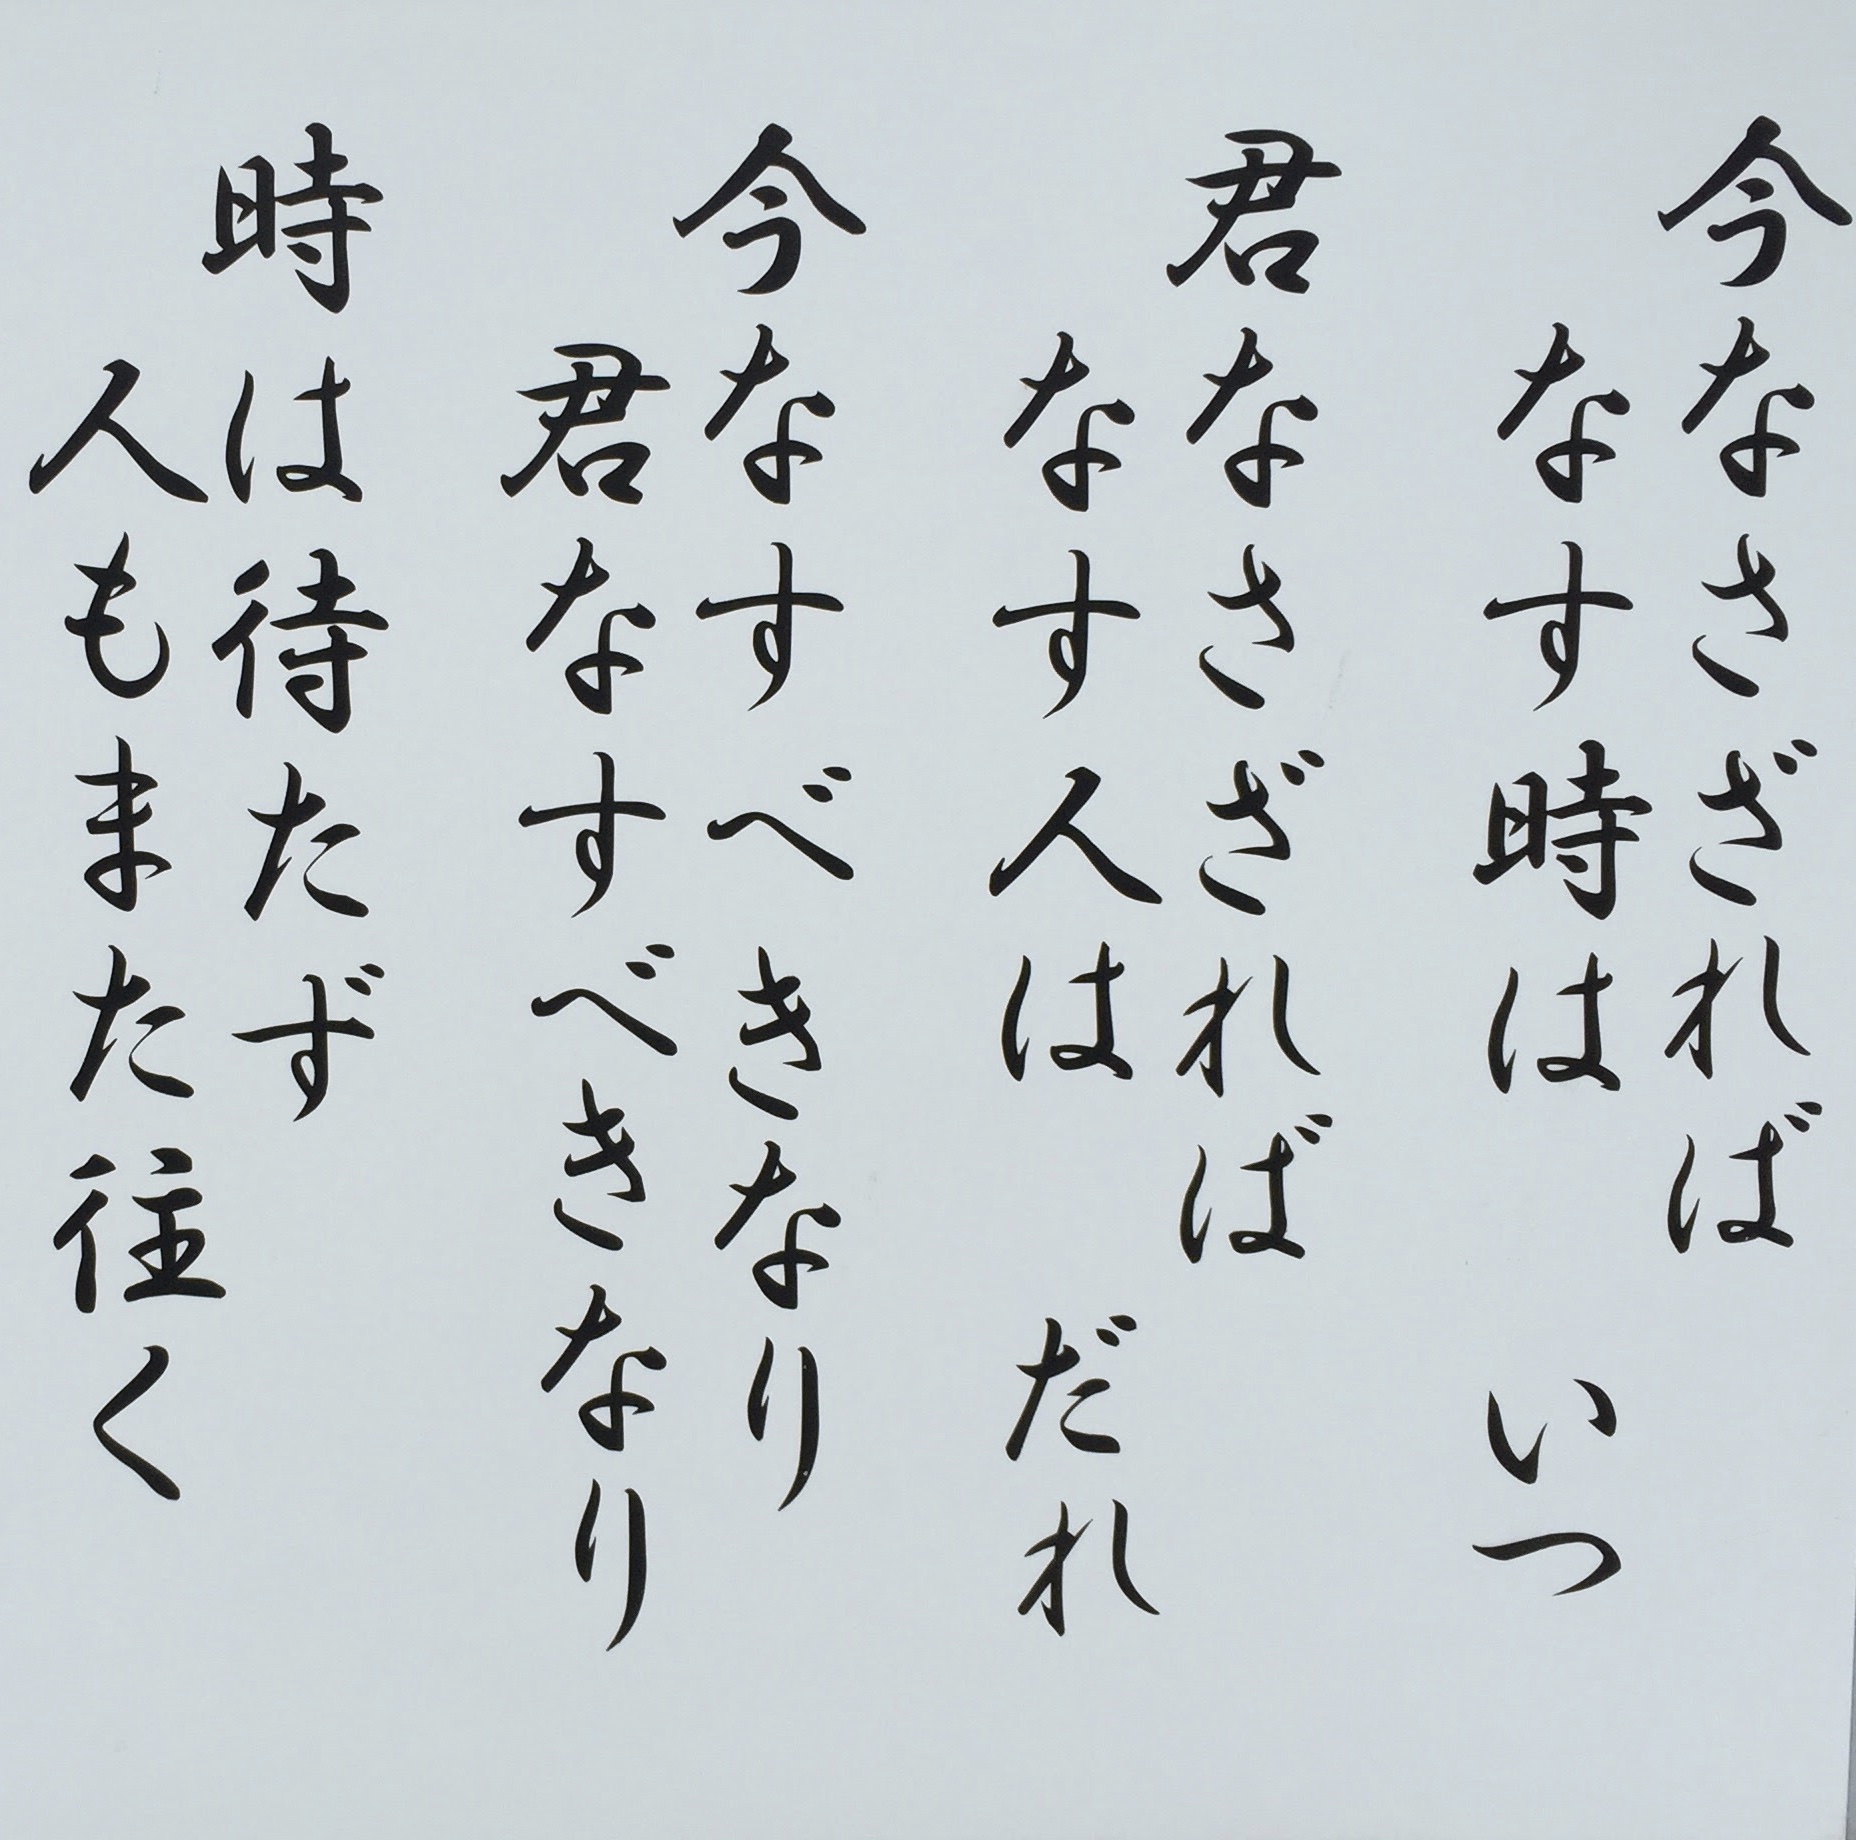 今なさざれば
なす時は　いつ
君なさざれば
なす人は　だれ
今なすべきなり
君なすべきなり
時は待たず
人もまた往く